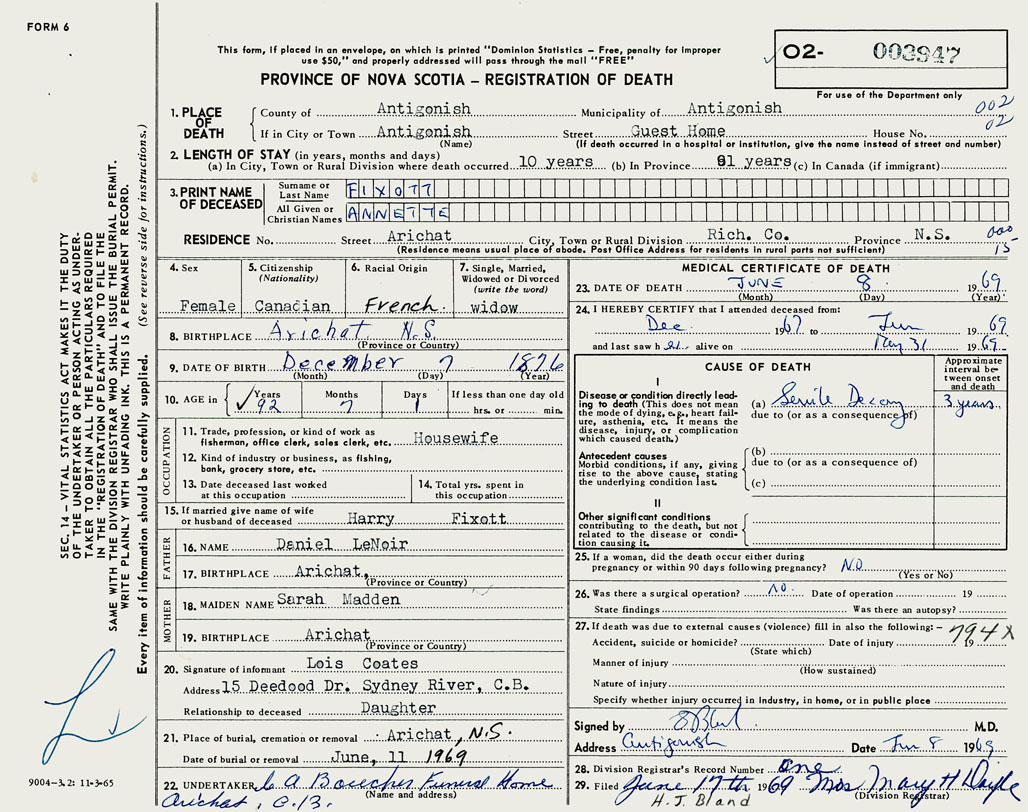 FORM 6
This form, if placed in an envelope, on which is printed "Dominion Statistics – Free, penalty for improper
use $50," and properly addressed will pass through the mail "FREE"
PROVINCE OF NOVA SCOTIA – REGISTRATION OF DEATH
O2- 003947
For use of the Department only
002
02
1. PLACE OF DEATH
County of Antigonish Municipality of Antigonish
If in City or Town Antigonish Street Guest Home House No.
(Name) (If death occurred in a hospital or institution, give the name instead of street and number)
2. LENGTH OF STAY (in years, months and days)
(a) In City, Town or Rural Division where death occurred 10 years (b) In Province 81 years (c) In Canada (if immigrant)
3. PRINT NAME OF DECEASED
Surname or Last Name FIXOTT
All Given or Christian Names ANNETTE
RESIDENCE No. Street Arichat City, Town or Rural Division Rich. Co. Province N.S.
(Residence means usual place of abode. Post Office Address for residents in rural parts not sufficient)
000
15
4. Sex
Female
5. Citizenship
(Nationality)
Canadian
6. Racial Origin
French
7. Single, Married,
Widowed or Divorced
(write the word)
widow
8. BIRTHPLACE Arichat N.S.
(Province or Country)
9. DATE OF BIRTH December 7 1876
(Month) (Day) (Year)
10. AGE in
Years Months Days If less than one day old
92 7 1 hrs. or min.
OCCUPATION
11. Trade, profession, or kind of work as
fisherman, office clerk, sales clerk, etc. Housewife
12. Kind of industry or business, as fishing,
bank, grocery store, etc.
13. Date deceased last worked
at this occupation
14. Total yrs. spent in
this occupation
15. If married give name of wife
or husband of deceased Harry Fixott
FATHER
16. NAME Daniel LeNoir
17. BIRTHPLACE Arichat,
(Province or Country)
MOTHER
18. MAIDEN NAME Sarah Madden
19. BIRTHPLACE Arichat
(Province or Country)
20. Signature of informant Lois Coates
Address 15 Deedood Dr. Sydney River, C.B.
Relationship to deceased Daughter
21. Place of burial, cremation or removal Arichat, N.S.
Date of burial or removal June, 11 1969
22. UNDERTAKER C A Boucher Funeral Home
(Name and address)
Arichat, C.B.
MEDICAL CERTIFICATE OF DEATH
23. DATE OF DEATH JUNE 8 1969
(Month) (Day) (Year)
24. I HEREBY CERTIFY that I attended deceased from:
Dec 1967 to Jun 1969
and last saw her alive on May 31 1969
CAUSE OF DEATH
Approximate
interval be-
tween onset
and death
I
Disease or condition directly lead-
ing to death (This does not mean
the mode of dying, e.g., heart fail-
ure, asthenia, etc. It means the
disease, injury, or complication
which caused death.)
(a) Senile Decay 3 years
due to (or as a consequence of)
Antecedent causes
Morbid conditions, if any, giving
rise to the above cause, stating
the underlying condition last.
(b)
due to (or as a consequence of)
(c)
II
Other significant conditions
contributing to the death, but not
related to the disease or condi-
tion causing it.
25. If a woman, did the death occur either during
pregnancy or within 90 days following pregnancy? NO
(Yes or No)
26. Was there a surgical operation? NO Date of operation 19
State findings Was there an autopsy?
27. If death was due to external causes (violence) fill in also the following: –
794X
Accident, suicide or homicide? Date of injury 19
(State which)
Manner of injury
(How sustained)
Nature of injury
Specify whether injury occurred in industry, in home, or in public place
Signed by M.D.
Address Antigonish Date Jun 8 1969
28. Division Registrar's Record Number one
29. Filed June 17th 1969 Mrs Mary H Doyle
(Division Registrar)
H.J. Bland
SEC. 14 – VITAL STATISTICS ACT MAKES IT THE DUTY
OF THE UNDERTAKER OR PERSON ACTING AS UNDER-
TAKER TO OBTAIN ALL THE PARTICULARS REQUIRED
IN THE "REGISTRATION OF DEATH" AND TO FILE THE
SAME WITH THE DIVISION REGISTRAR WHO SHALL ISSUE THE BURIAL PERMIT.
WRITE PLAINLY WITH UNFADING INK. THIS IS A PERMANENT RECORD.
Every item of information should be carefully supplied. (See reverse side for instructions.)
9004-3.2: 11-3-65